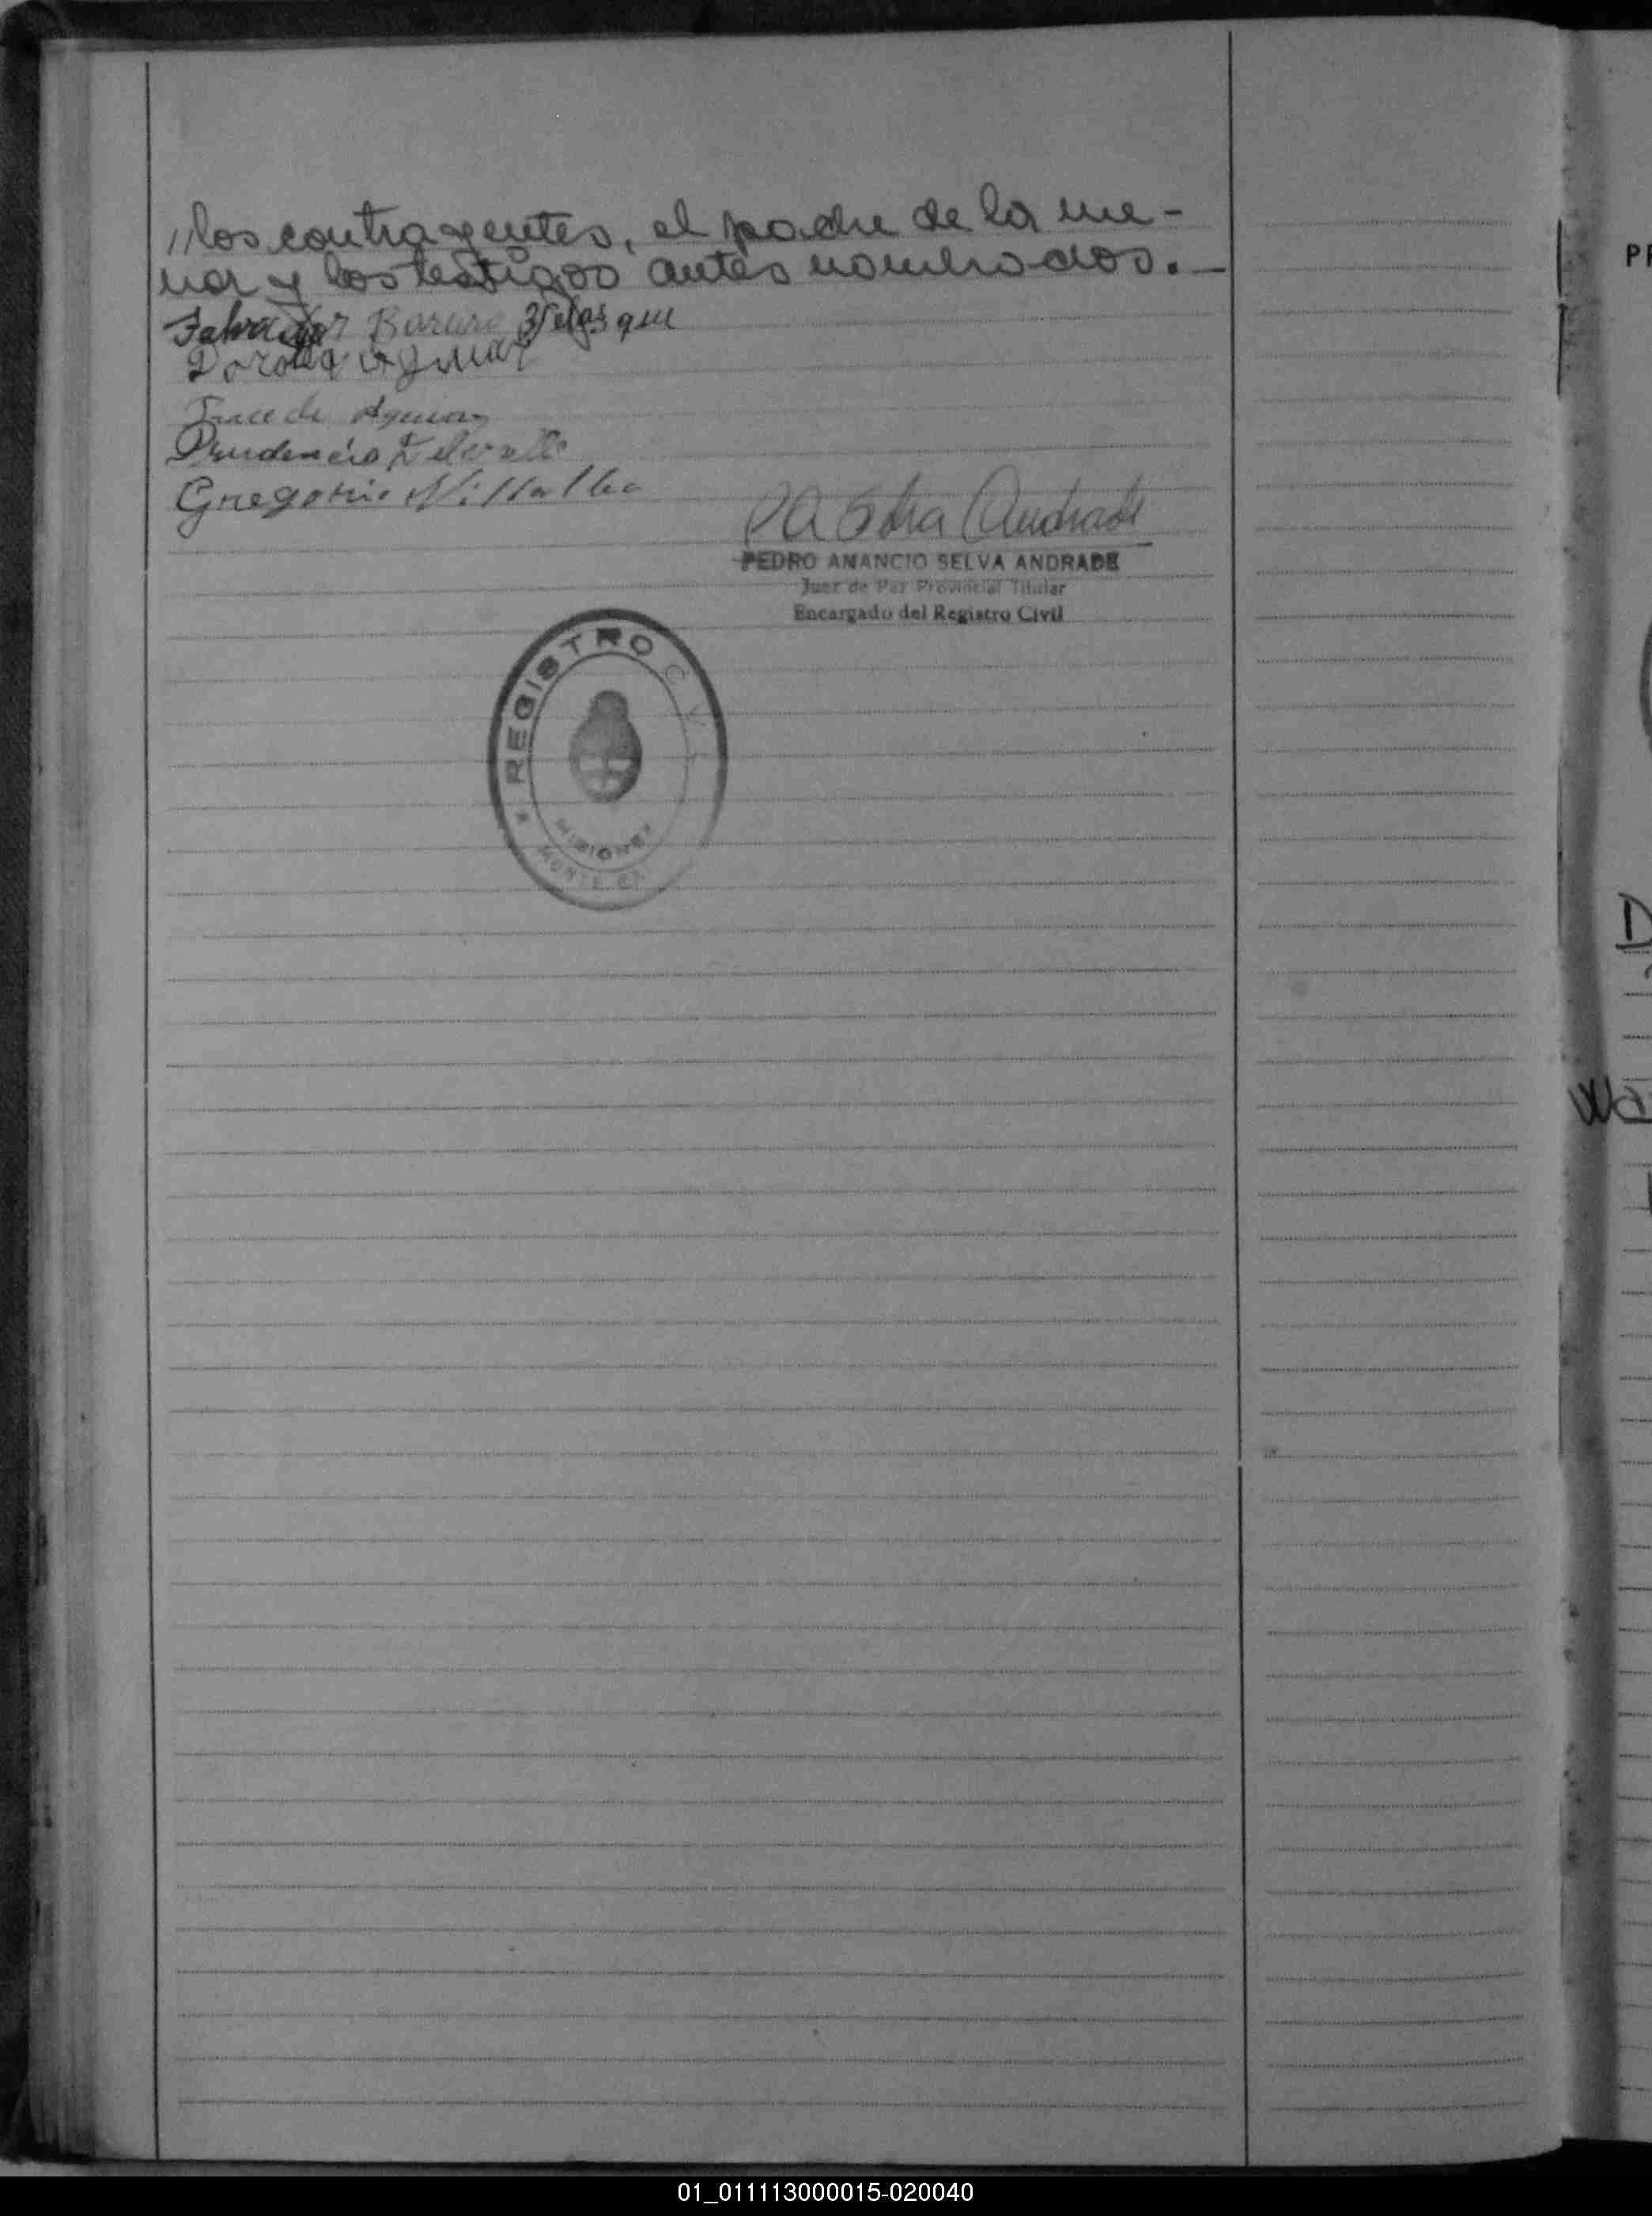 //los contrayentes, el padre de la me-
nor y los testigos antes nombrados.-
Salvador Velasque
Dorotea
Aguiar
Prudencio
Gregorio Villalba
PA Selva Andrade
PEDRO AMANCIO SELVA ANDRADE
Juez de Paz Provincial Titular
Encargado del Registro Civil
REGISTRO CIVIL
MISIONES
MONTE CA
PR
D
Wa
01_011113000015-020040